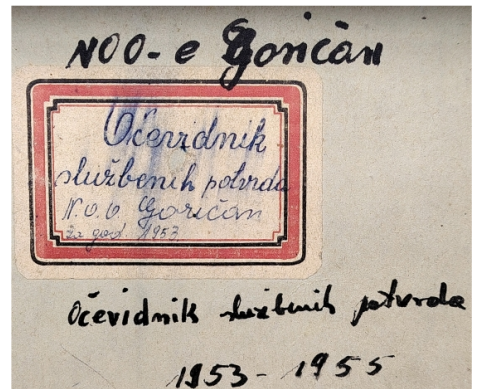 NOO-e Goričan
Očevidnik
službenih potvrda
N.O.O. Goričan
za god. 1953.
Očevidnik službenih potvrda
1953 - 1955